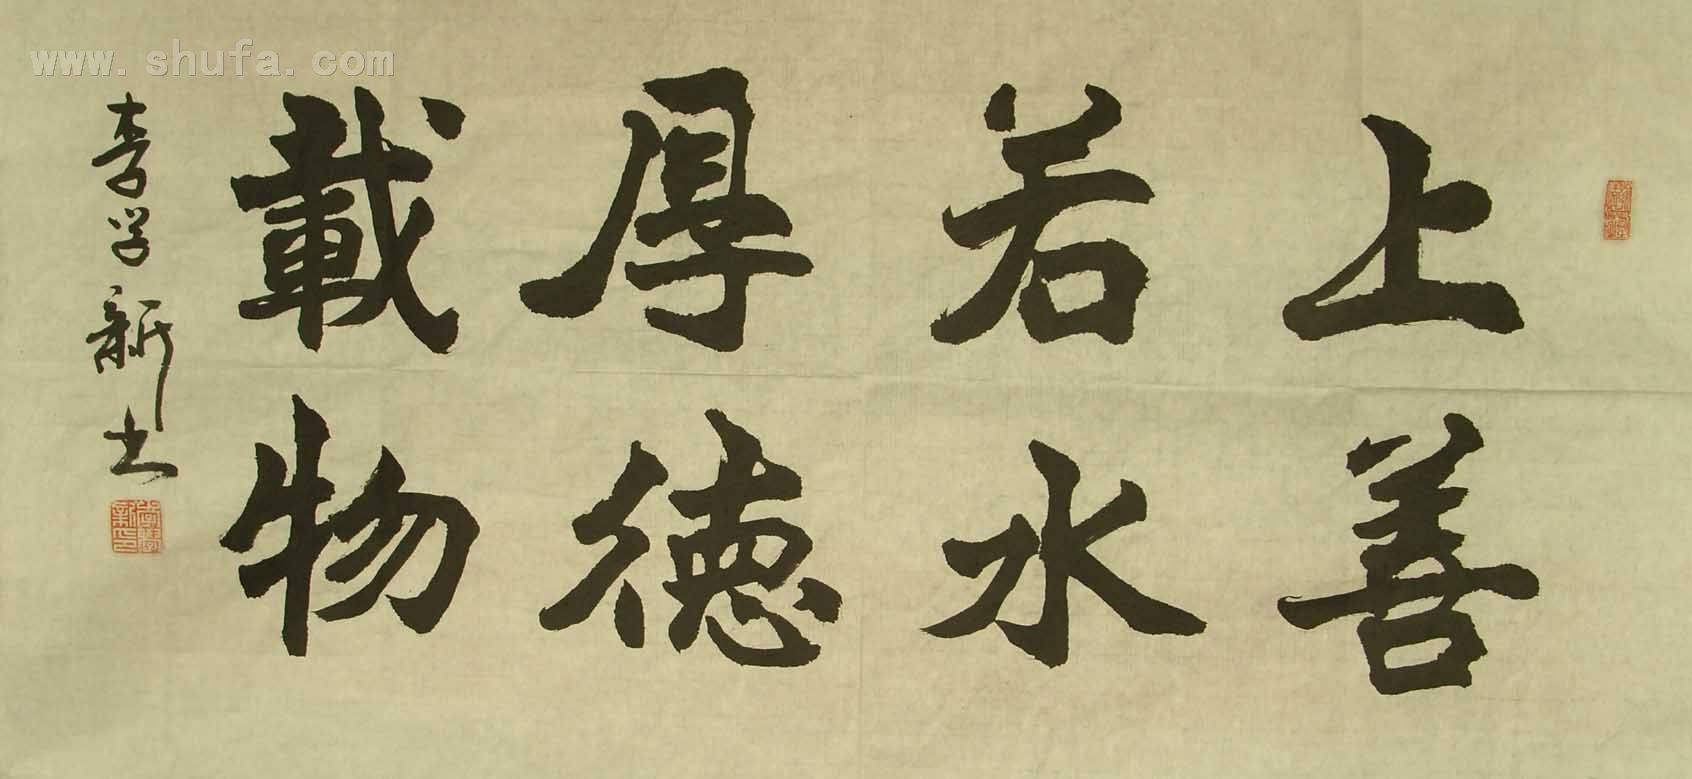 www.shufa.com
上善
若水
厚德
載物
李学新书
李學新印